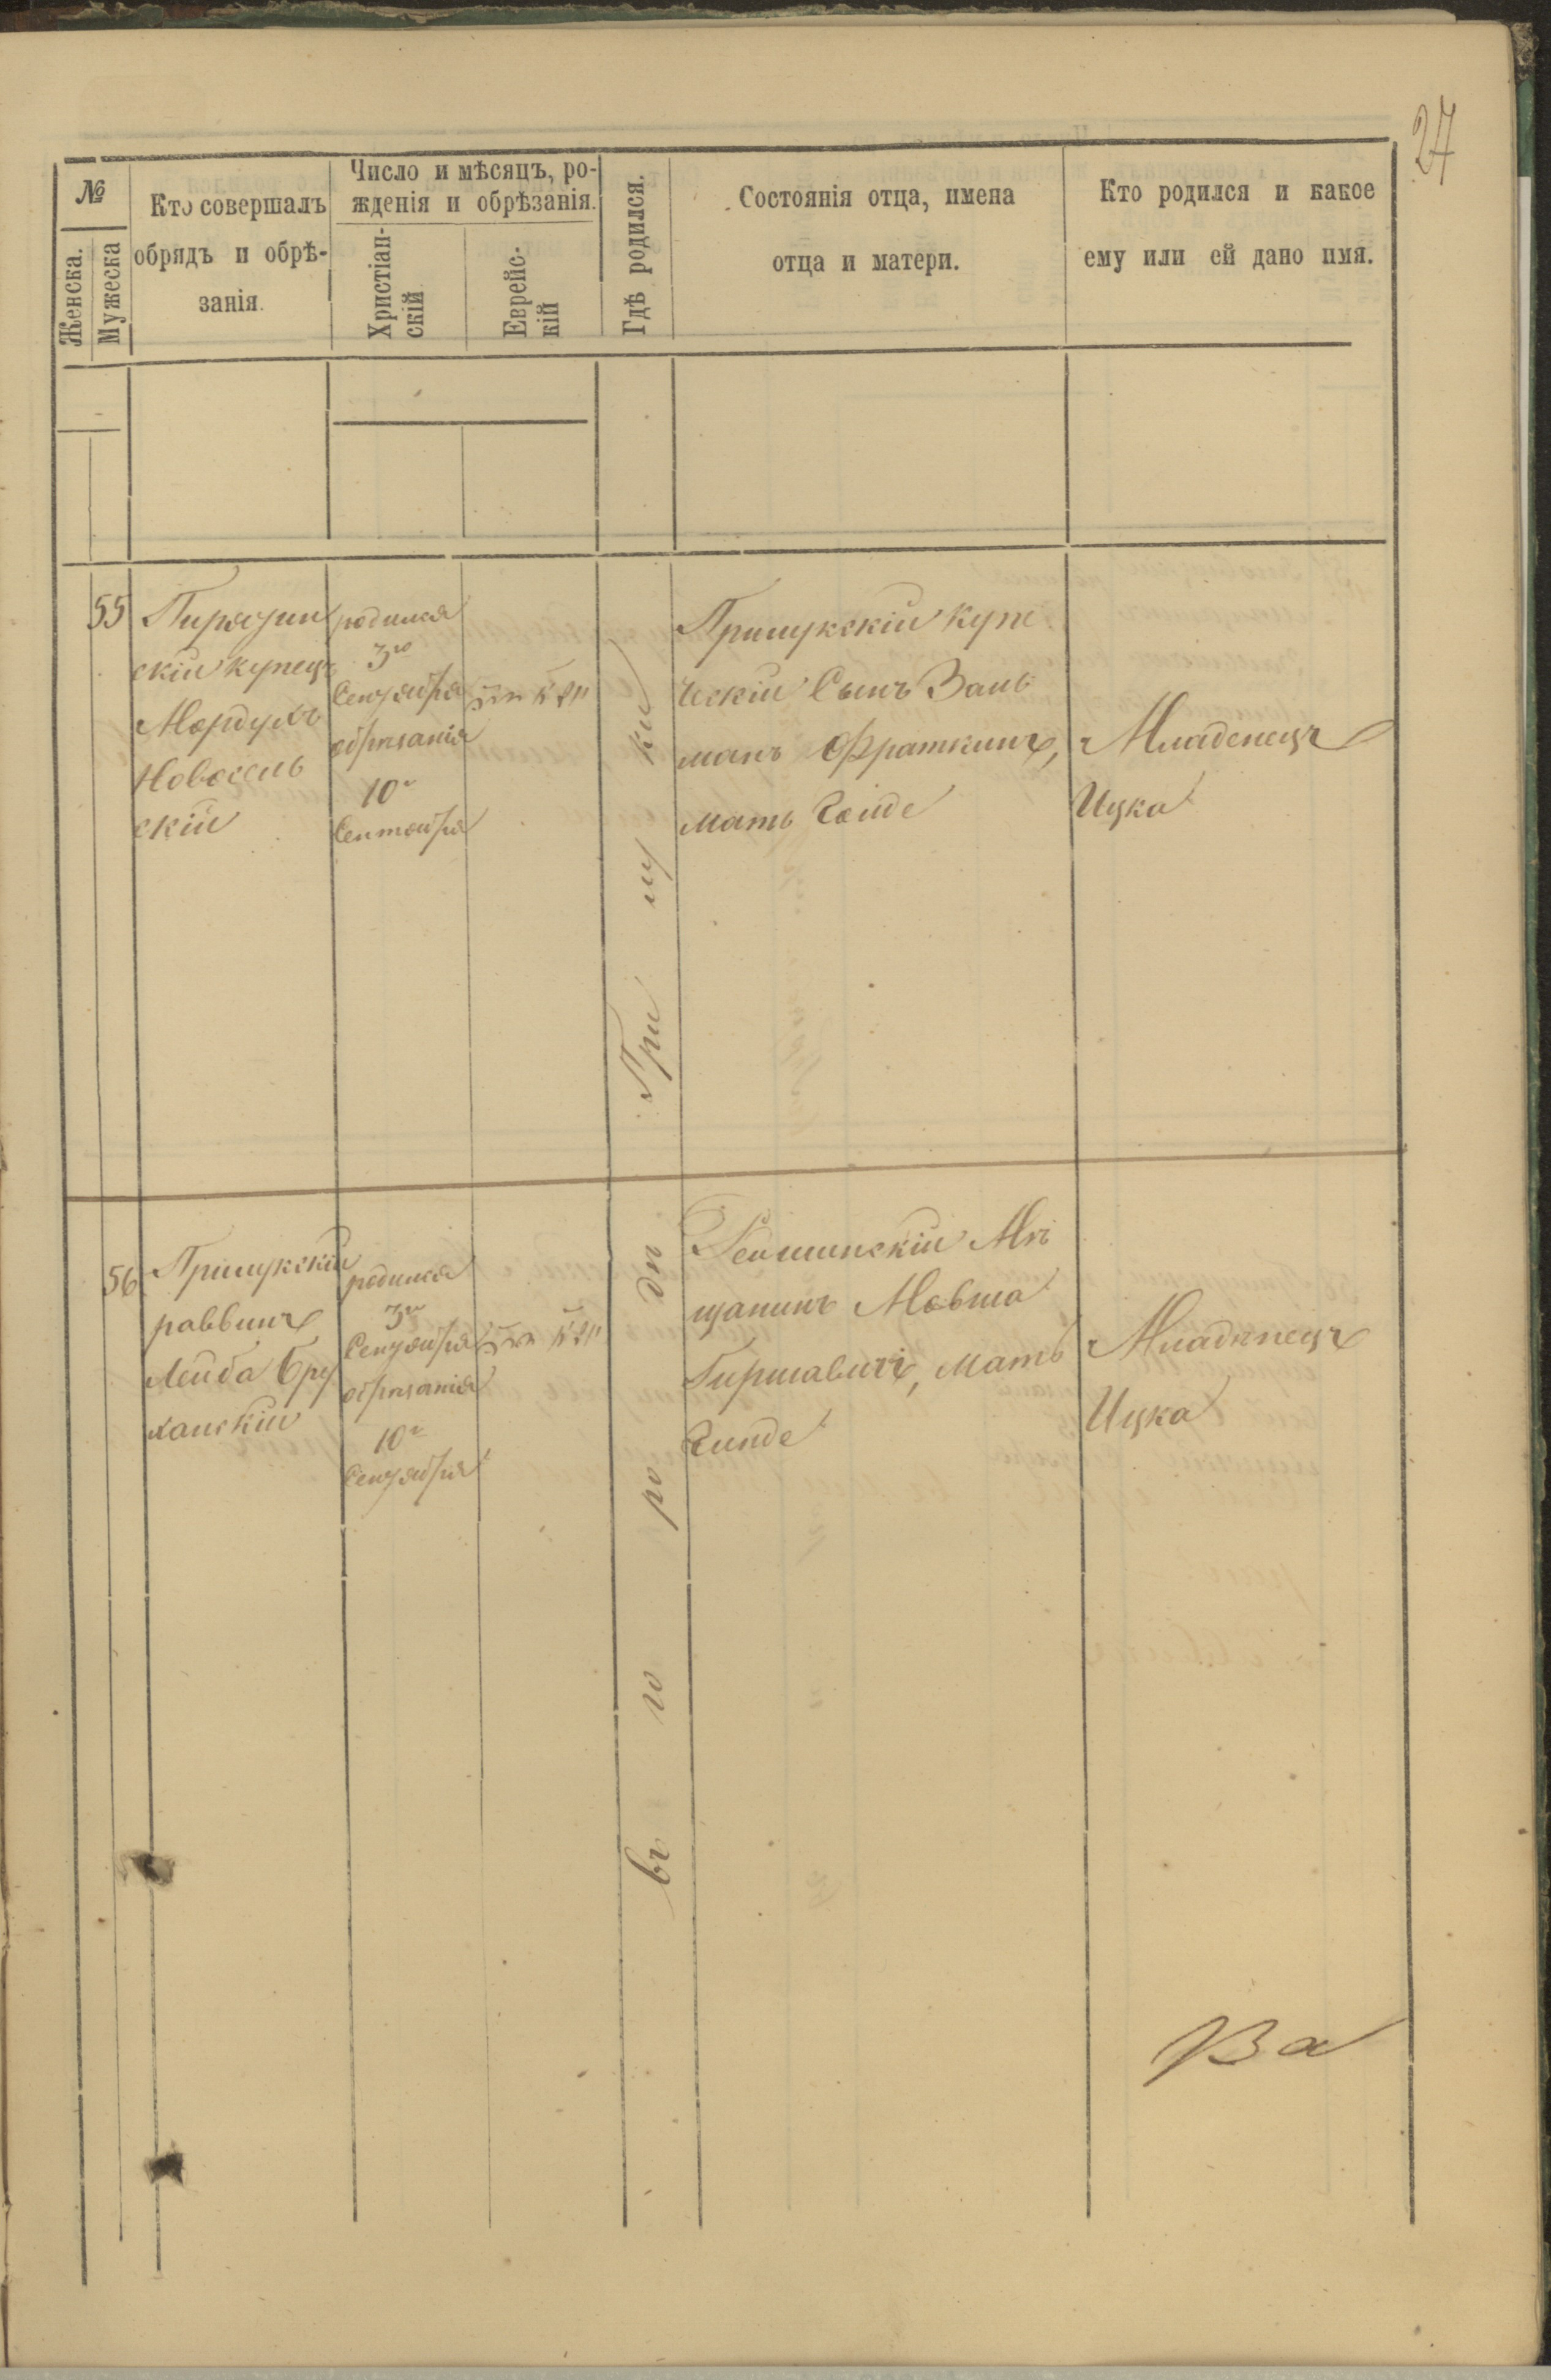 27
№
Женска.
Мужеска
Кто совершалъ
обрядъ и обрѣ-
занія.
Число и мѣсяцъ, ро-
жденія и обрѣзанія.
Христіан-
скій
Еврейс-
кій
Гдѣ родился.
Состоянія отца, имена
отца и матери.
Кто родился и какое
ему или ей дано имя.
55
Пирятин
скій купецъ
Мордухъ
Новосель
скій
родился
3го
Сентября
обрѣзанія
10го
Сентября
Прилукскій купе
ческій Сынъ Заль
манъ Фраткинъ,
мать
Младенецъ
Ицка
въ городѣ Прилуки
56
Прилукскій
раввинъ
Лейба Бру
ханскій
родился
3го
Сентября
обрѣзанія
10го
Сентября
Мѣ
щанинъ Мовша
Гиршевичъ, мать
Младѣнецъ
Ицка